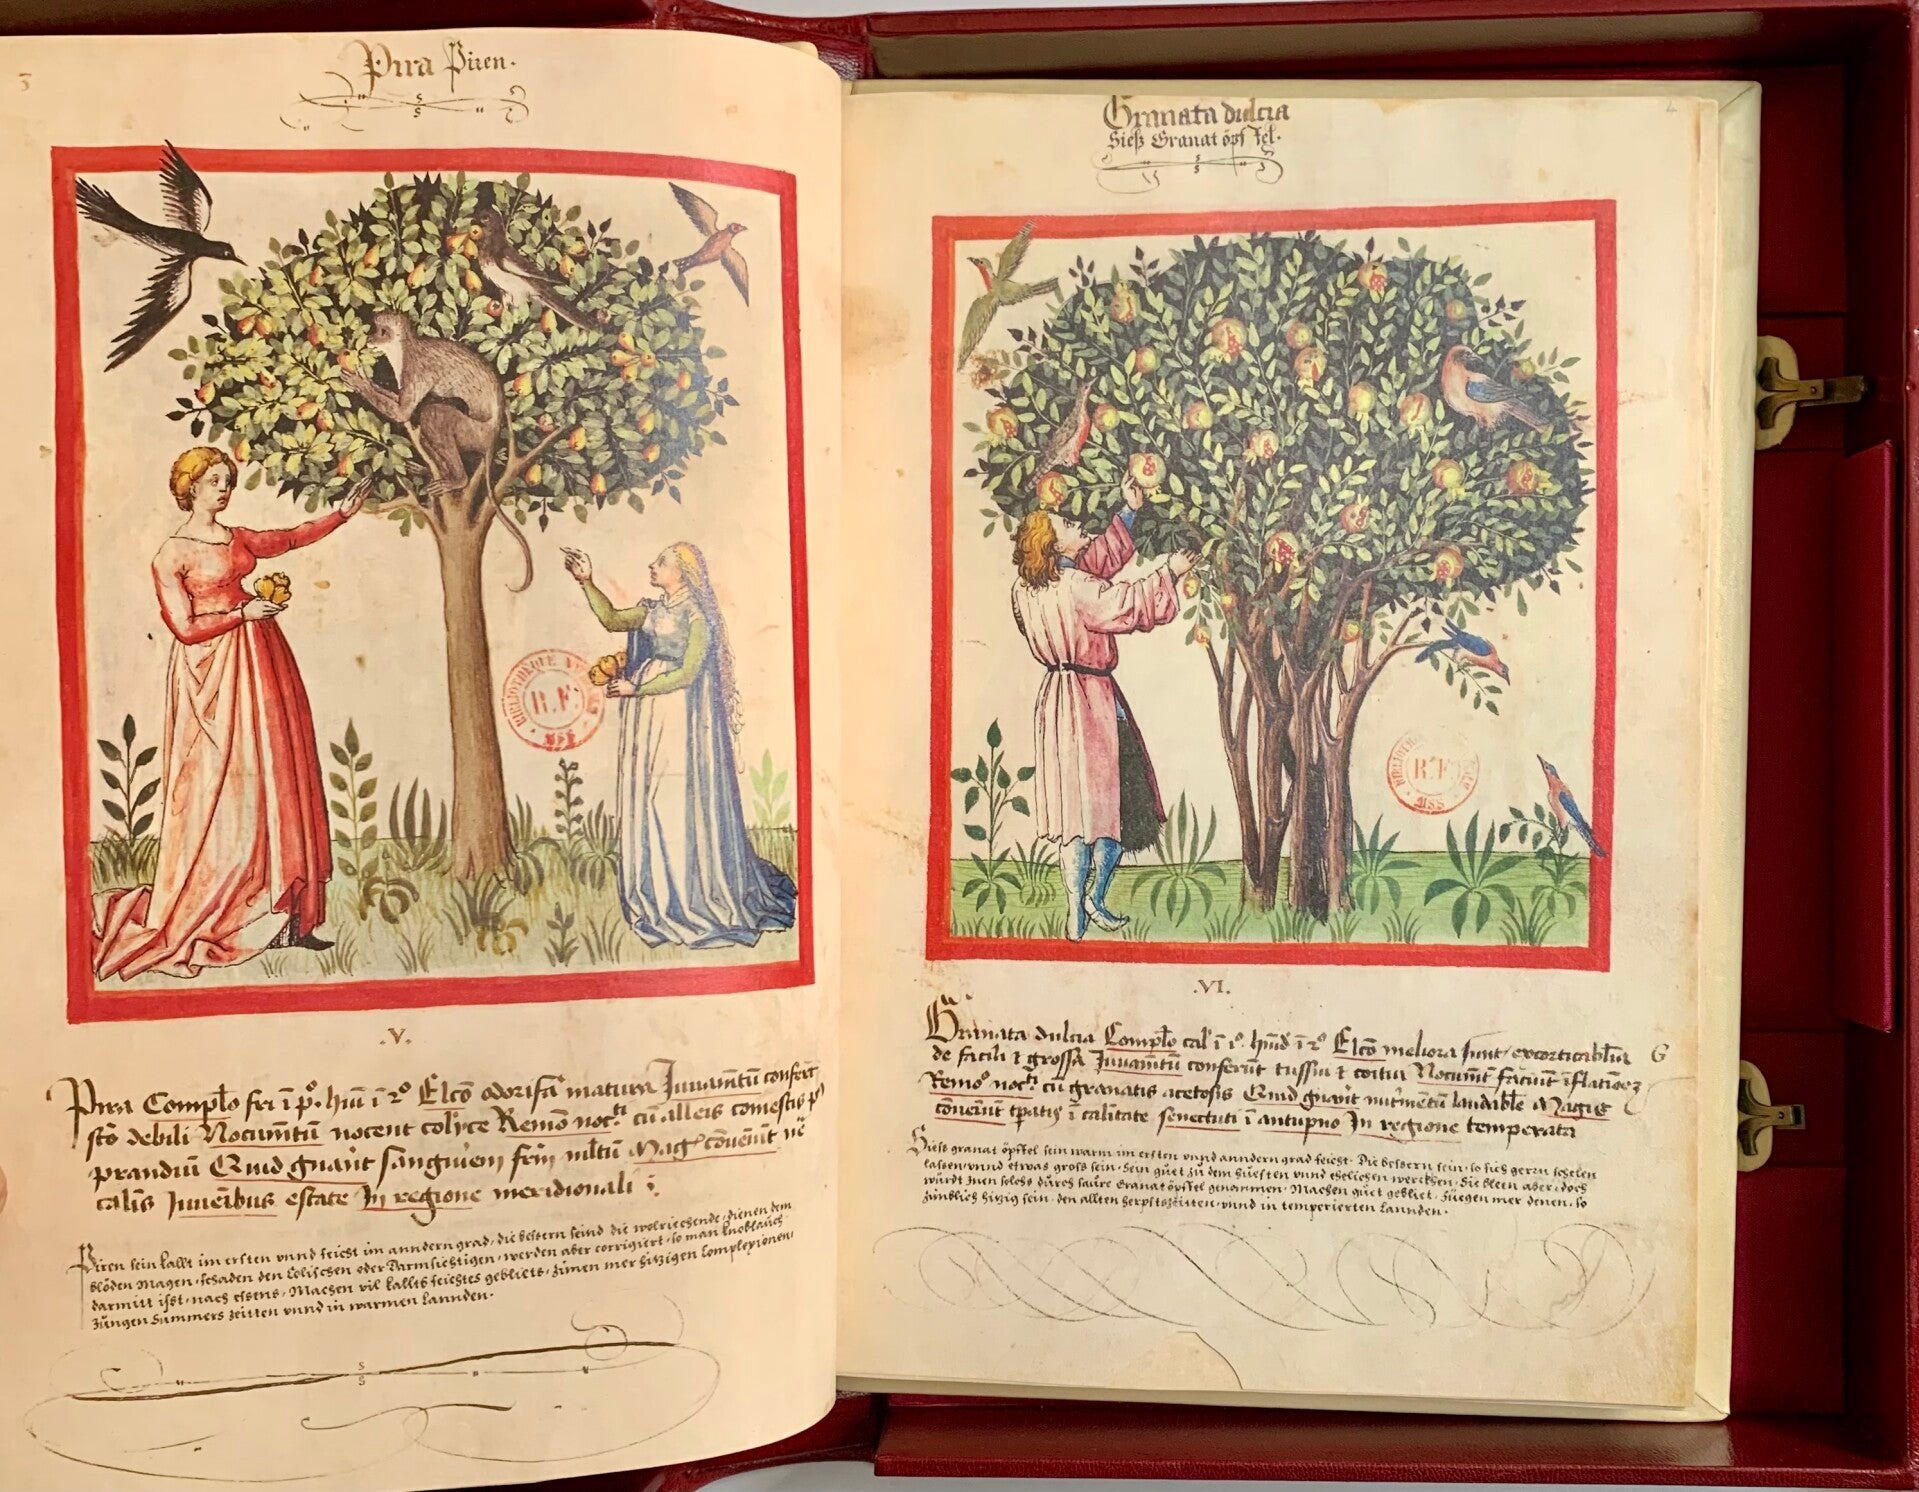 3
Pira Piren.
.V.
Pira Complo fri i po. hui i 2o Elco odorifa matura Juuamtu confert
sto debili Nocumtu nocent colice Remo nocti cu alleis comestis p9
prandiu Quid gnant sanguiem frm mltu Mag conueniut
calis Juueibus estate In regione meridionali
Piren sein kallt im ersten vnnd feicht im anndern grad, die bestern seind die wolriechende, dienen dem
blöden Magen, schaden den Colischen oder Darmsichtigen, werden aber corrigiert, so man knoblauch
darmitt isst, nach essens, Machen vil kallts feichtes gebliets, zimen mer hitzigen Complexionen,
Jungen Summers zeitten vnnd in warmen Lannden.
BIBLIOTHEQUE
R.F.
MSS
4
Granata dulcia
Sieß Granat öpffel.
R.F.
MSS
.VI.
Granata dulcia Complo cal i io. humd i 2o Elco meliora sunt excorticablia
de facili & grossa Juuamtu conferut tussui & coitui Nocumt faciunt iflatioez
Remo nocti cu granatis acetosis Quid gnant nutrmentu laudable Magis
conueniut tpatis i calitate senectuti i antupno In regione temperata
G
Siess granat öpffel sein warm im ersten vnnd anndern grad feicht. Die bestern sein, so sich gern schelen
lassen, vnnd etwas gross sein. Sein guet zu dem huesten vnnd ehelichen werckhen. Sie bleen aber, doch
wurdt Inen solchs durch saure Granat öpffel genommen. Machen guet gebliet. Fuegen mer denen, so
zimblich hitzig sein, den allten herpstzeitten, vnnd in temperierten Lannden.